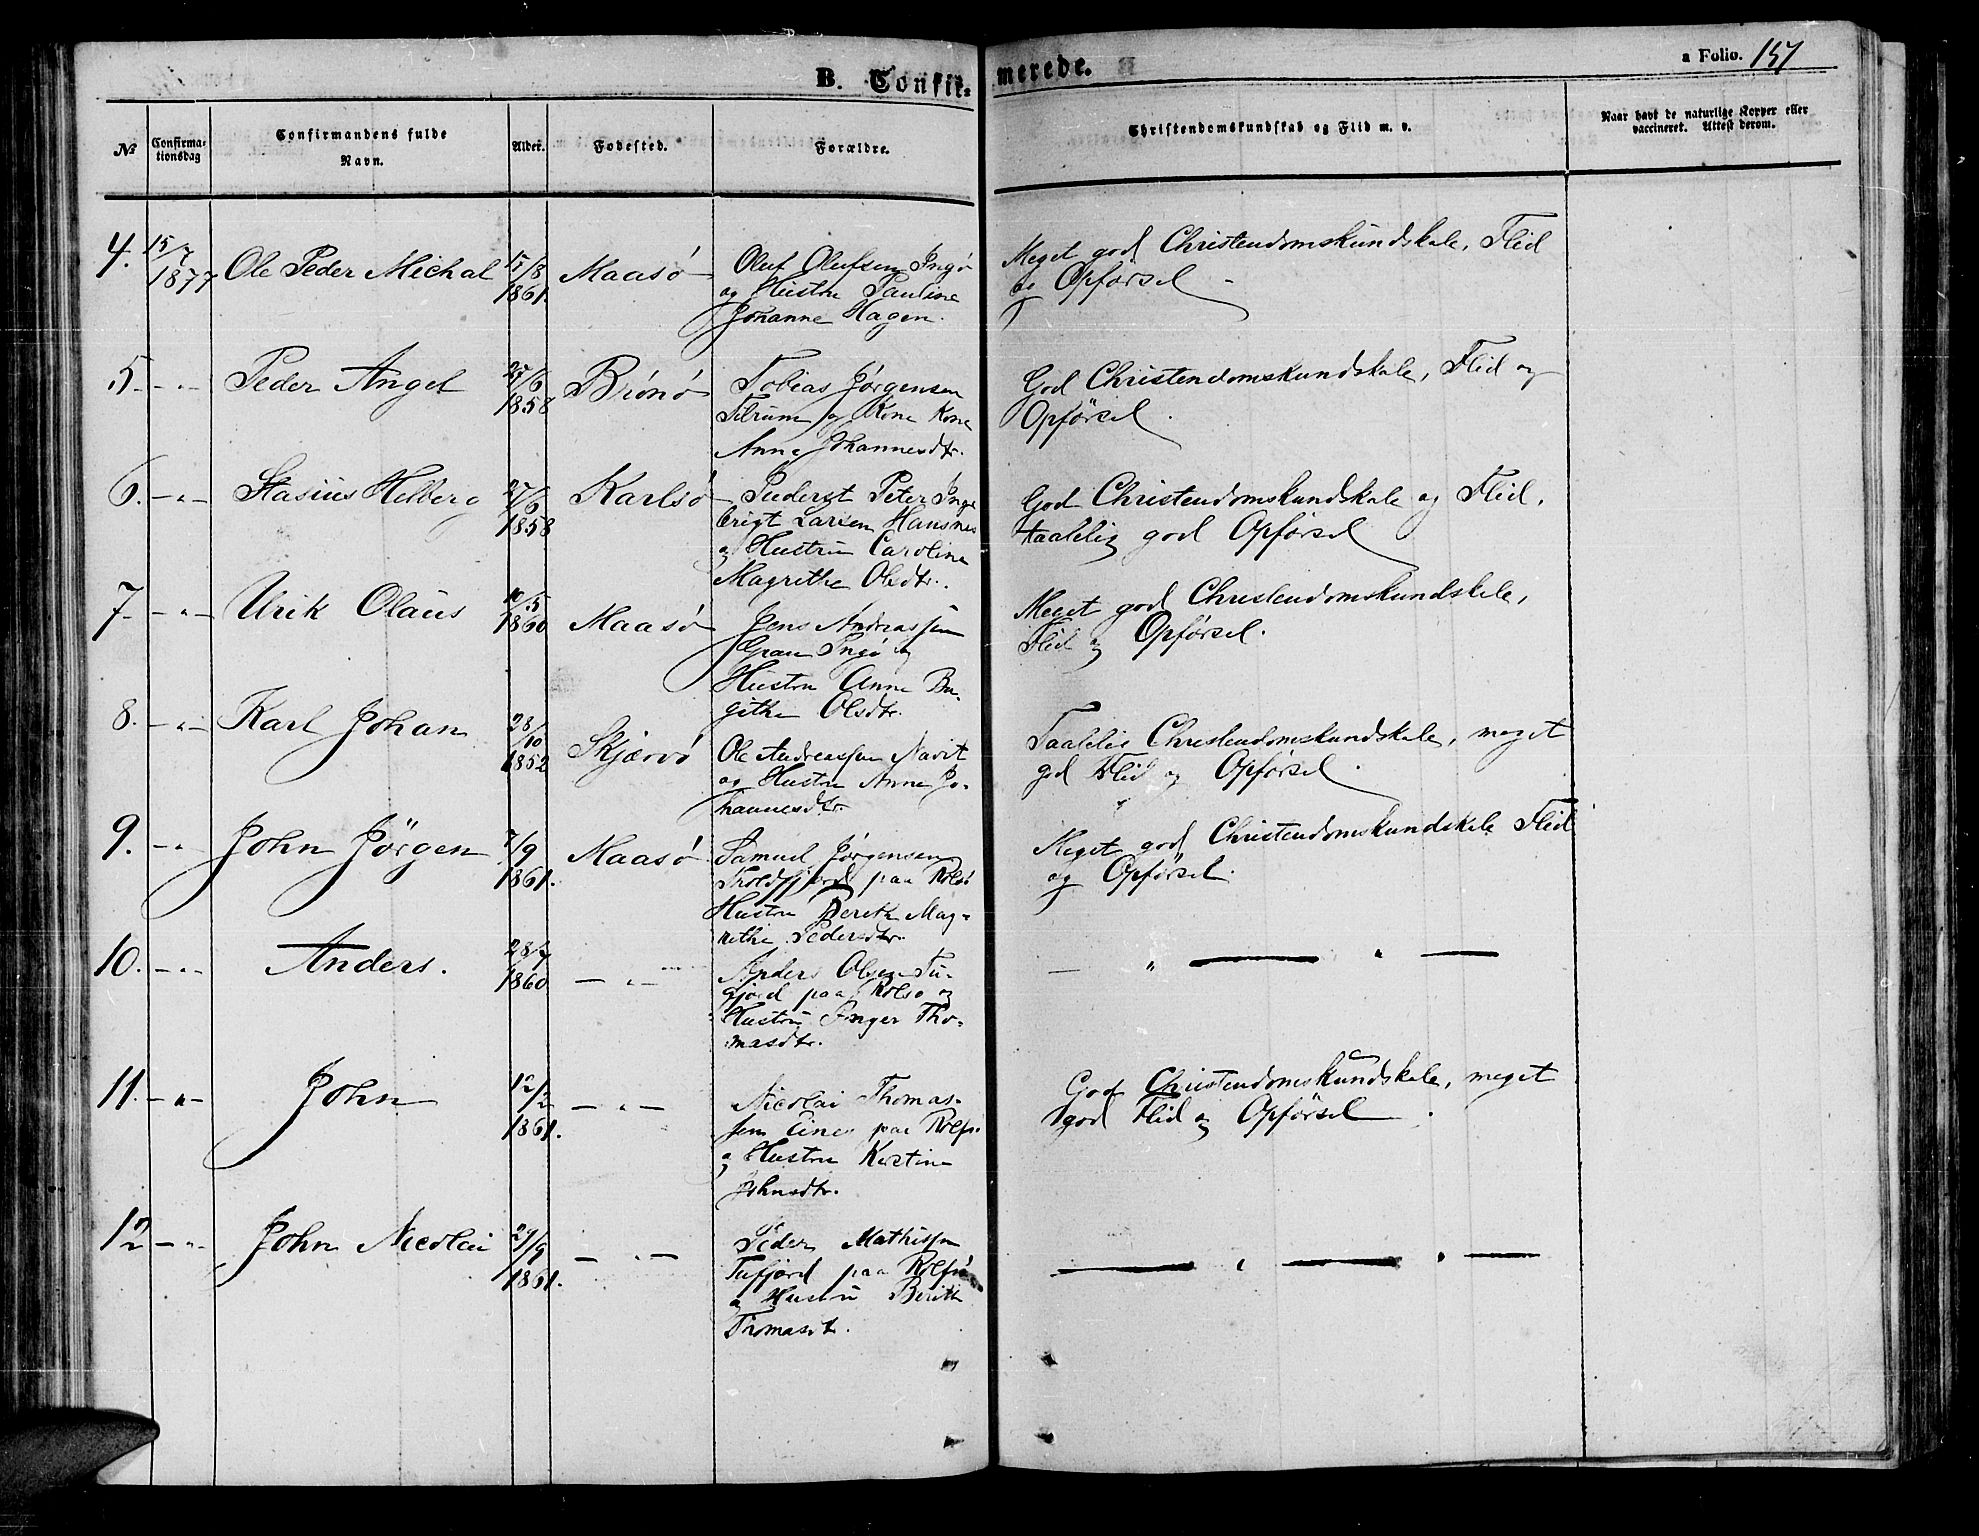 B. Confir-
merede.
a Folio. 157
№
Confirma-
tionsdag
Confirmandens fulde
Navn.
Alder.
Fødested.
Forældre.
Christendomskundskab og Flid m. v.
Naar havt de naturlige Kopper eller
vaccineret. Attest derom.
4. 15/7 1877
Ole Peder Michal
17/8 1861.
Maasø
Oluf Olufsen Ingø
og Hustru Pauline
Johanne Hagen.
Meget god Christendomskundskab, Flid
og Opførsel
5. - " -
Peder Angel
1858
Brønø
Tobias Jørgensen
og Kone Kone
Anne Johannesdtr.
God Christendomskundskab, Flid og
Opførsel.
6. - " -
Stasius Helberg
27/6 1858
Karlsø
Peter Inge
brigt Larsen Hansnes
og Hustru Caroline
Magrethe Olsdtr.
God Christendomskundskab og Flid,
taalelig god Opførsel
7. - " -
Urik Olaus
10/5 1860
Maasø
Jens Andreassen
Ingø og
Hustru Anne Be-
githe Olsdtr.
Meget god Christendomskundskab,
Flid og Opførsel.
8. - " -
Karl Johan
28/10 1852
Skjærvø
Ole Andreassen Navit
og Hustru Anne Jo-
hannesdtr.
Taalelig Christendomskundskab, meget
god Flid og Opførsel.
9. - " -
John Jörgen
7/9 1861.
Maasø
Samuel Jørgensen
Troldfjord paa Rolsø
Hustru Berith Mag-
rethe Pedersdtr.
Meget god Christendomskundskab Flid
og Opførsel.
10. - " -
Anders.
28/7 1860
- " -
Anders Olsen Tu-
fjord paa Rolsø og
Hustru Inger Tho-
masdtr.
- " - " -
11. - " -
John
12/2 1861.
- " -
Nicolai Thomas-
sen paa Rolfs
og Hustru Kirstine
Johnsdtr.
God Christendomskundskab, meget
god Flid og Opførsel.
12 - " -
John Nicolai
29/9 1861.
- " -
Peder Mathissen
Tufjord paa Rolfsø
og Hustru Berith
Thomasdt.
- " - " -